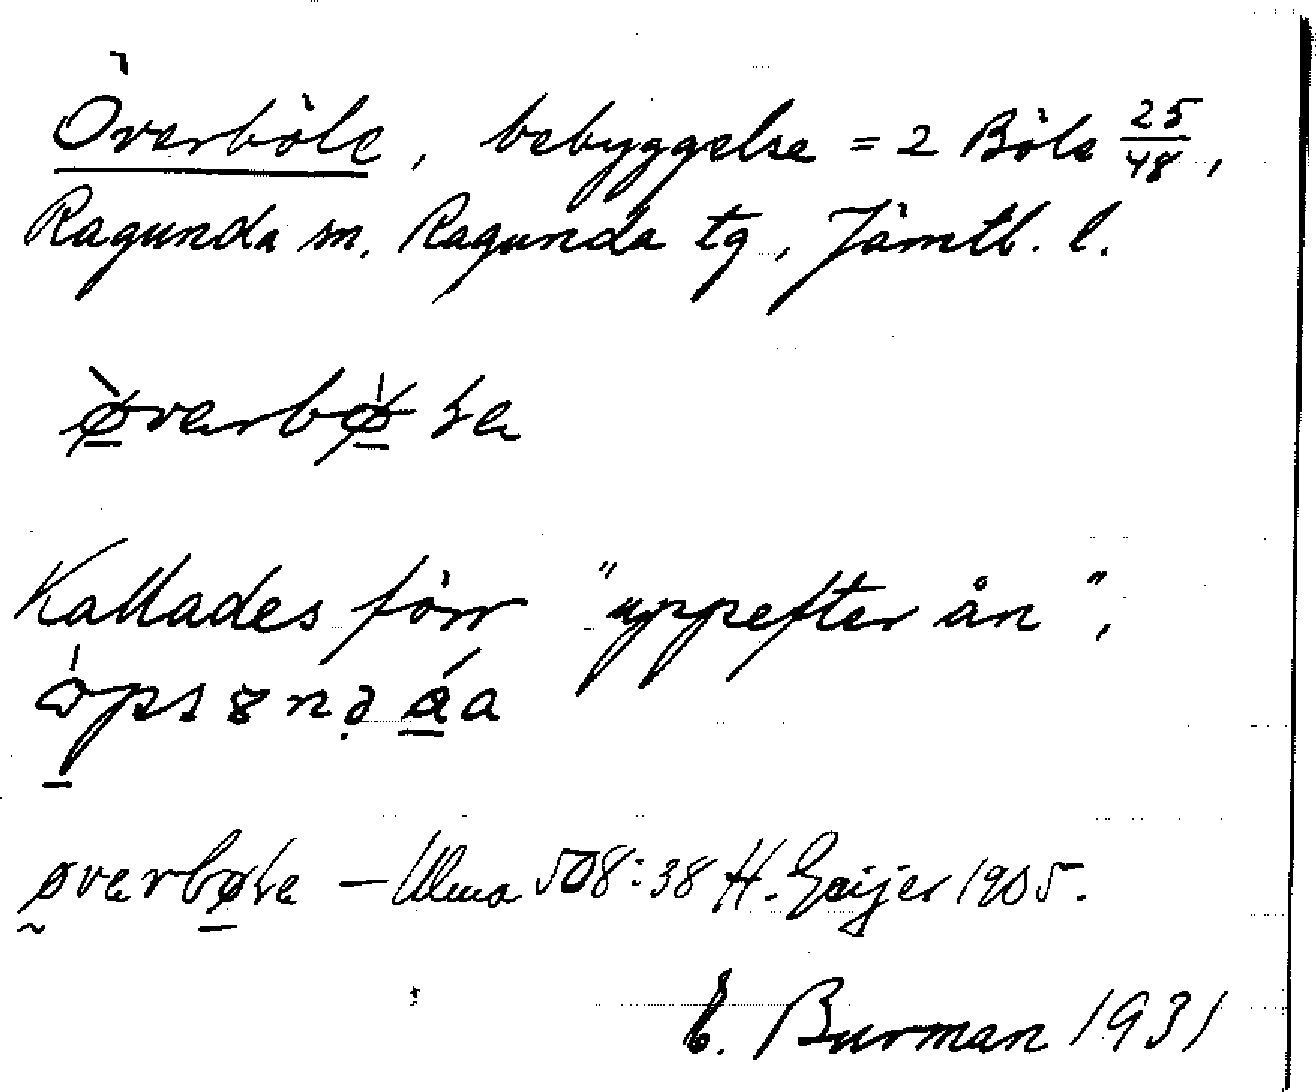 Överböle, bebyggelse = 2 Böle 25/48,
Ragunda sn. Ragunda tg, Jämtl. l.
øverbøɽe
Kallades förr "uppefter ån",
øverbøɽe – Ulma 508:38 H. Geijer 1905.
E. Burman 1931